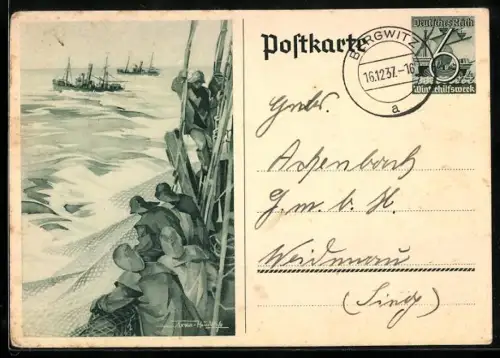 Postkarte
Deutsches Reich
6
Winterhilfswerk
BERGWITZ
16.12.37.-16
a
Gebr.
Achenbach
G. m. b. H.
Weidenau
(Sieg)